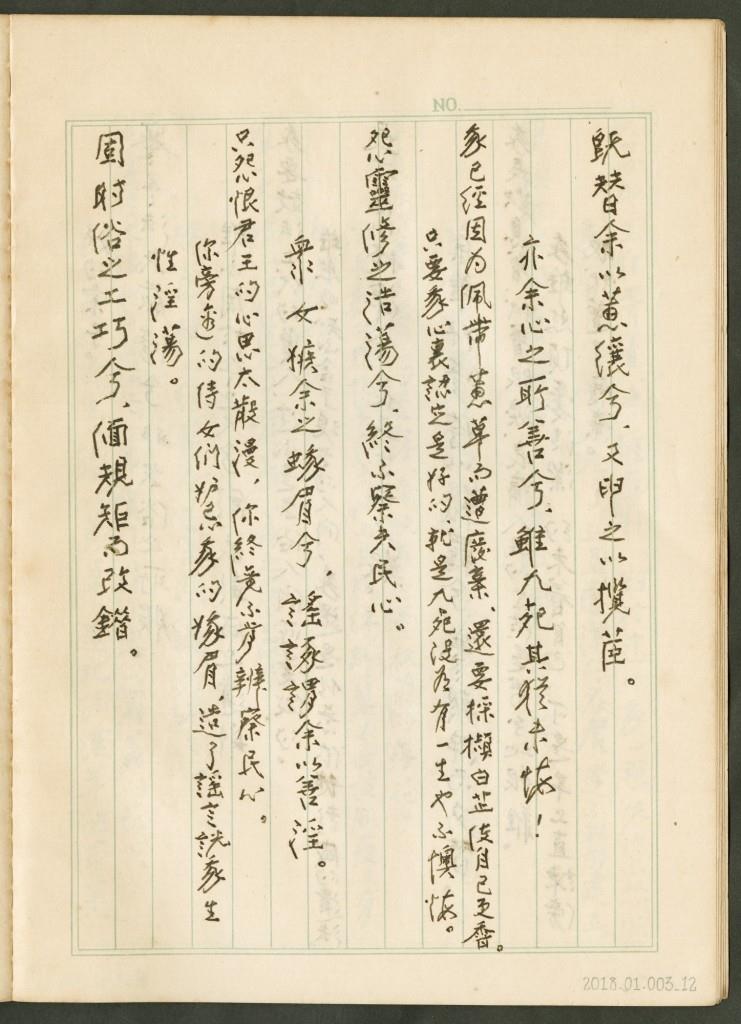 NO.
既替余以蕙纕兮、又申之以攬茝。
亦余心之所善兮、雖九死其猶未悔！
我已經因为佩帶蕙草而遭廢棄、還要採擷白芷使自己更香。
只要我心裏認定是好的、就是九死沒有一生也不懊悔。
怨靈修之浩蕩兮、終不察夫民心。
衆女嫉余之蛾眉兮、謠諑謂余以善淫。
只怨恨君王的心思太散漫、你終竟不肯辨察民心。
你旁邊的侍女們妒忌我的蛾眉、造了謠言説我生
性淫蕩。
固時俗之工巧兮、偭規矩而改錯。
2018.01.003_12